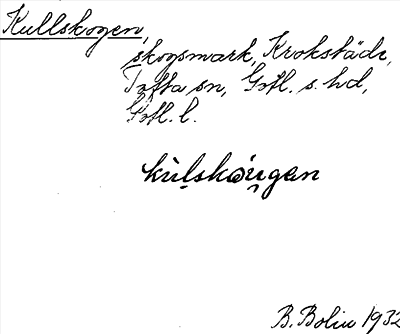 Kullskogen,
skogsmark, Krokstäde,
Tofta sn, Gotl. s. hd,
Gotl. l.
kùlskåu̯gan
B. Bolin 1932